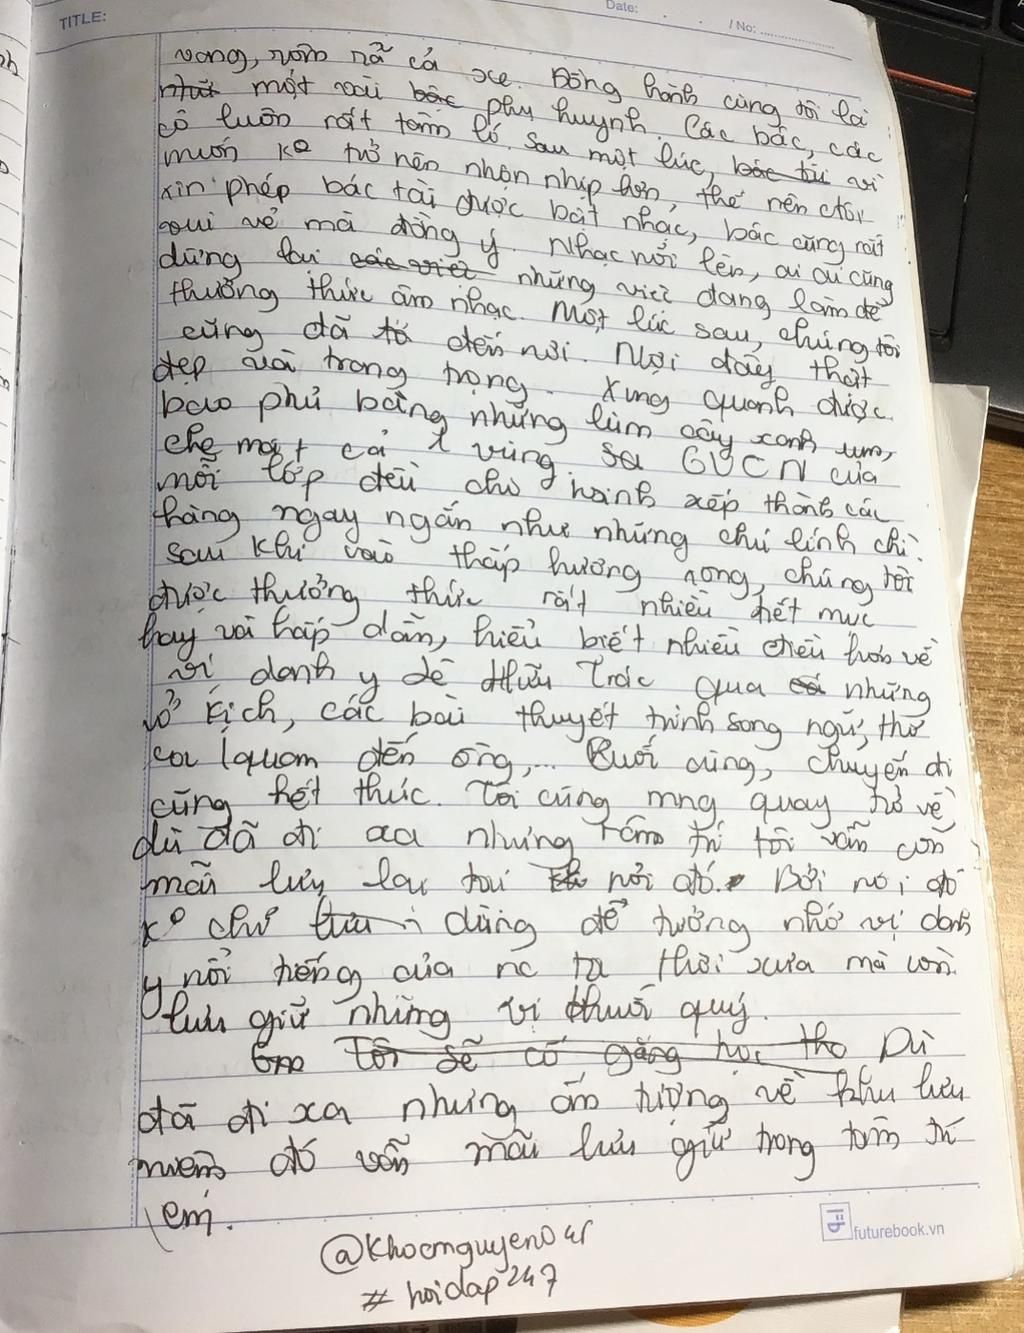 TITLE:
Date: . . / No: ..................
vang, rôm rả cả xe. Đồng hành cùng tôi là
một vài bác phụ huynh. Các bác, các
cô luôn rất tâm lí. Sau một lúc, vì
muốn ko trở nên nhộn nhịp hơn, thế nên
xin phép bác tài được bật nhạc, bác cũng rất
vui vẻ mà đồng ý. Nhạc nổi lên, ai ai cũng
dừng lại các việc những việc đang làm để
thưởng thức âm nhạc. Một lúc sau, chúng tôi
cũng đã đến nơi. Nơi đây thật
đẹp và trang trọng. Xung quanh được
bao phủ bằng những lùm cây xanh um,
che mát cả 1 vùng. GVCN của
mỗi lớp đều cho hs xếp thành các
hàng ngay ngắn như những chú lính chì.
Sau khi vào thắp hương xong, chúng tôi
được thưởng thức rất nhiều tiết mục
hay và hấp dẫn, hiểu biết nhiều điều hơn về
vị danh y Lê Hữu Trác qua những
vở kịch, các bài thuyết trình song ngữ, thơ
ca lquan đến ông,... Cuối cùng, chuyến đi
cũng hết thúc. Tôi cùng mng quay trở về,
dù đã đi xa nhưng tâm trí tôi vẫn còn
mãi lưu lại tại nơi đó. Bởi nơi đó
ko chỉ dùng để tưởng nhớ vị danh
y nổi tiếng của nc ta thời xưa mà còn
lưu giữ những vị thuốc quý.
Tôi sẽ cố gắng học Dù
đã đi xa nhưng ấn tượng về khu lưu
niệm đó vẫn mãi lưu giữ trong tâm trí
em.
futurebook.vn
@khoanguyen04
# hoidap247